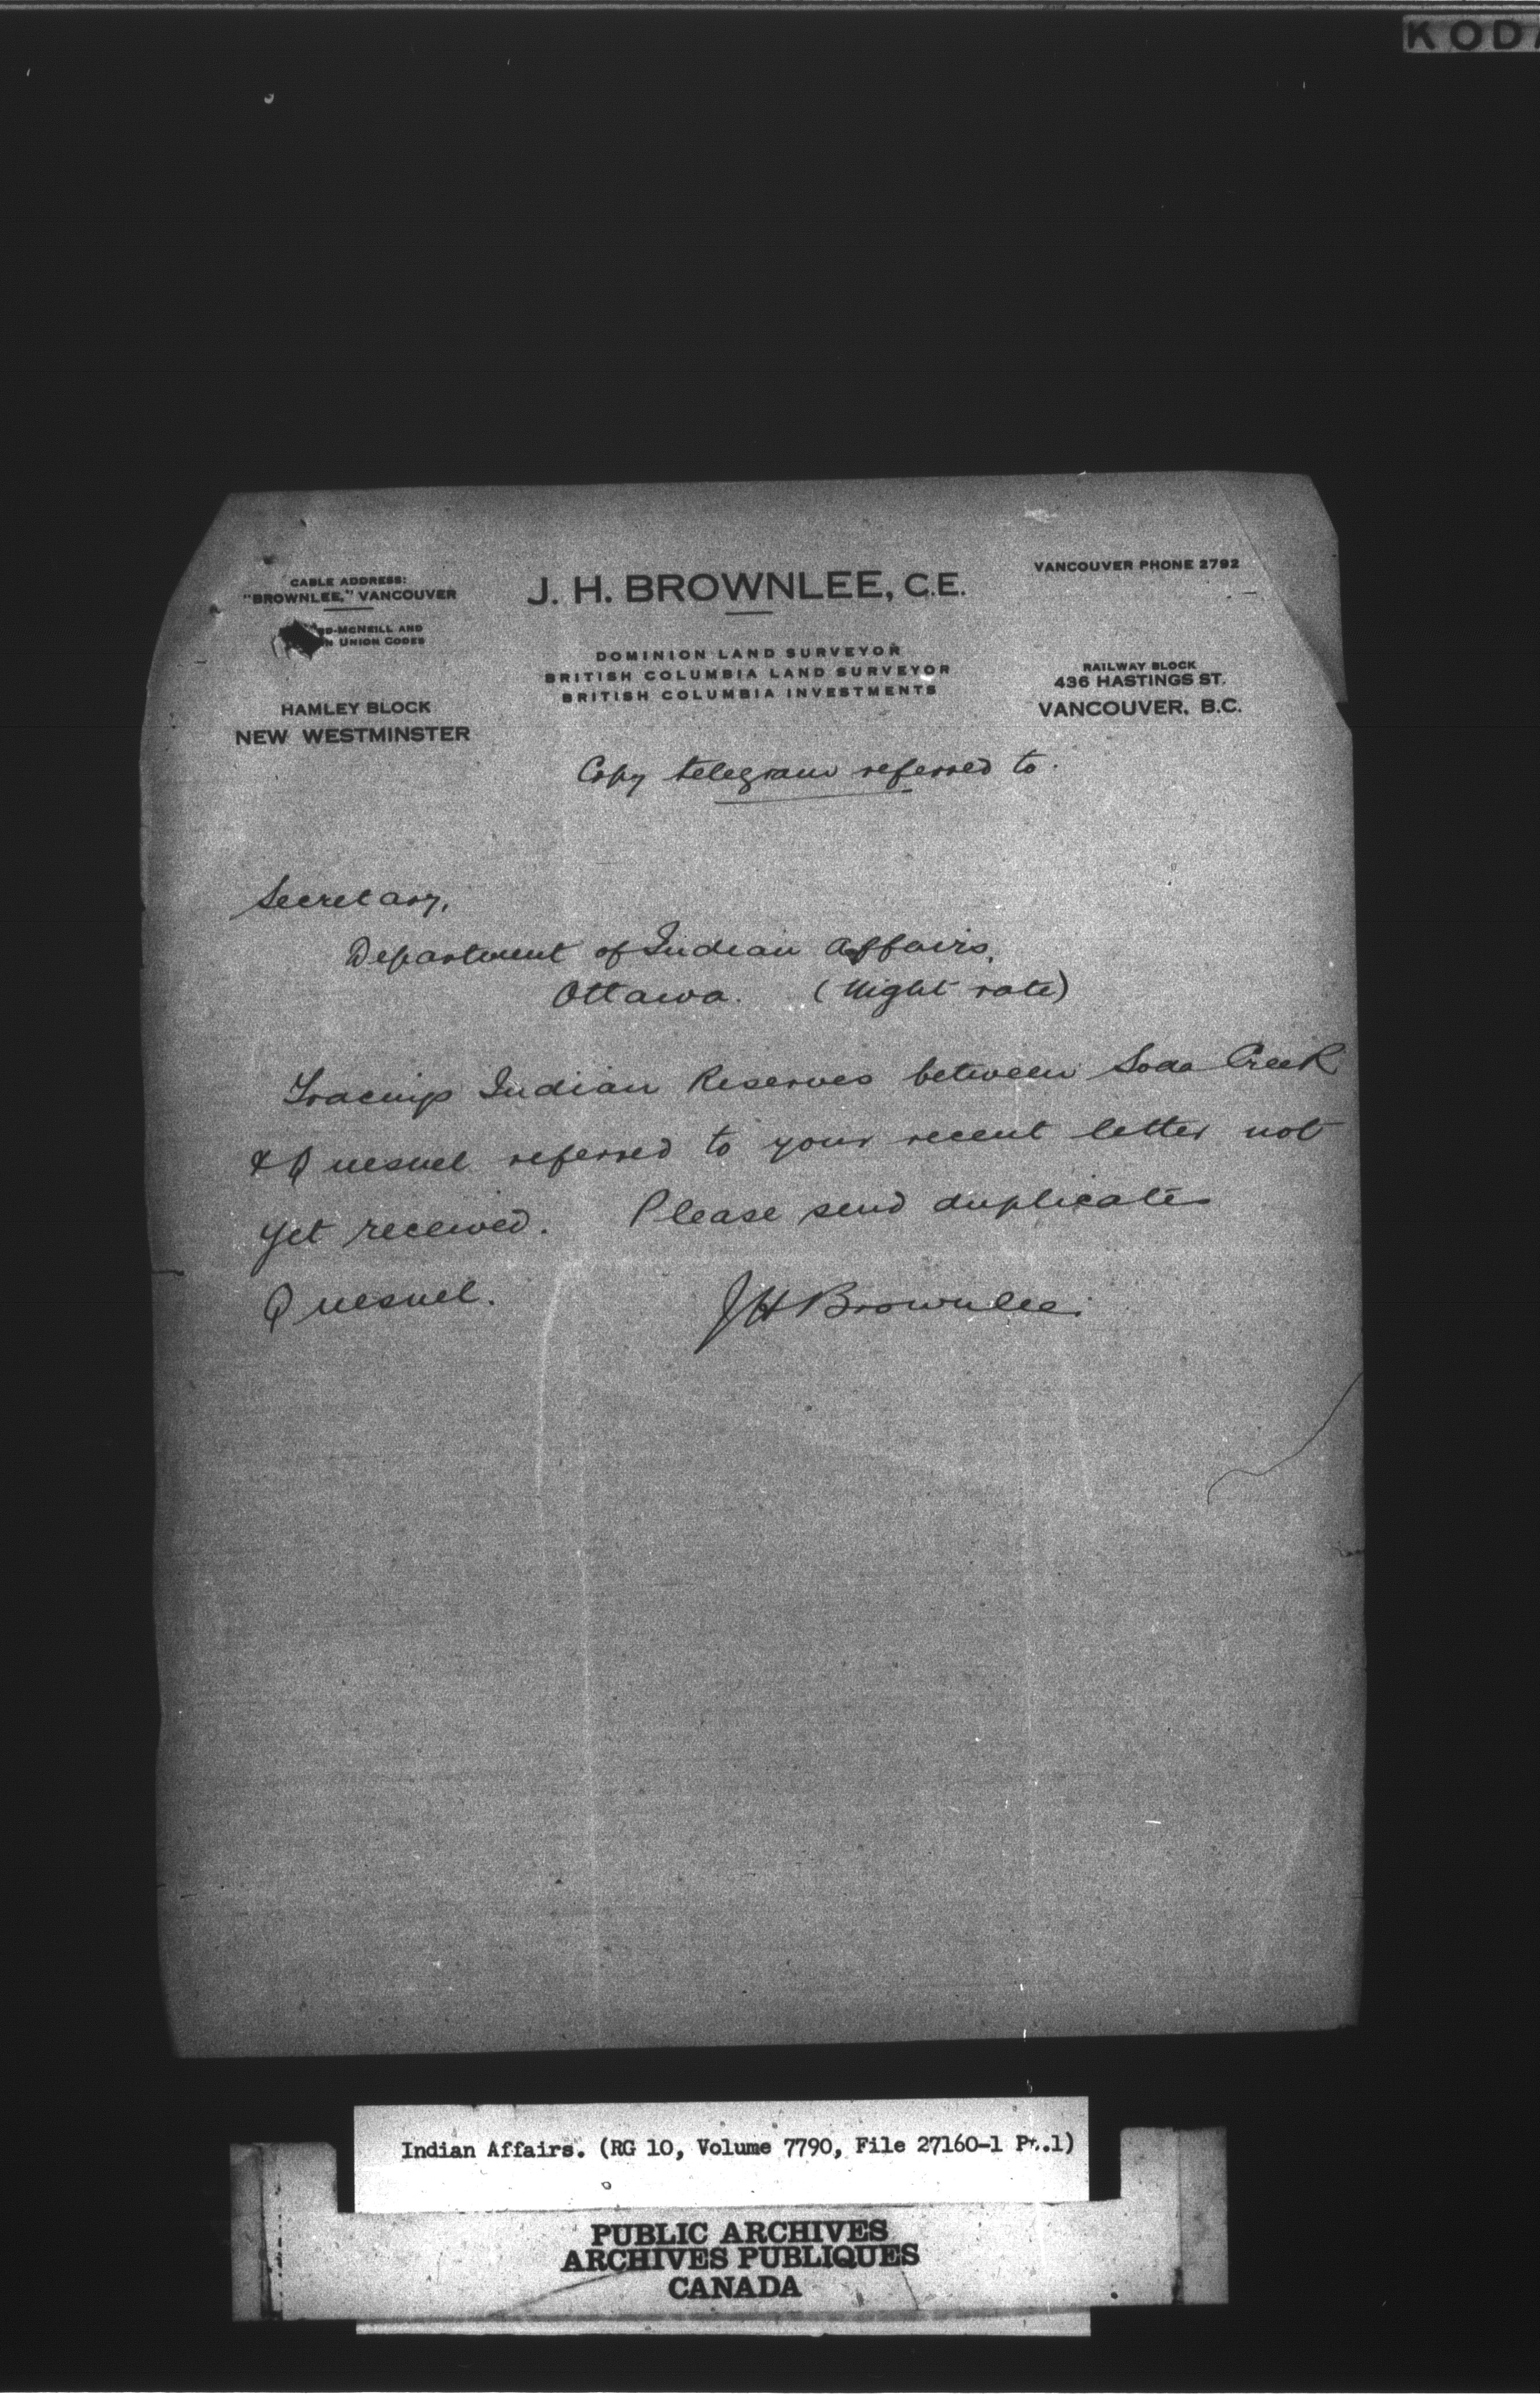 KODA
CABLE ADDRESS:
"BROWNLEE," VANCOUVER
-MCNEILL AND
UNION CODES
HAMLEY BLOCK
NEW WESTMINSTER
J. H. BROWNLEE, C.E.
DOMINION LAND SURVEYOR
BRITISH COLUMBIA LAND SURVEYOR
BRITISH COLUMBIA INVESTMENTS
VANCOUVER PHONE 2792
RAILWAY BLOCK
436 HASTINGS ST.
VANCOUVER, B.C.
Copy telegram referred to.
Secretary,
Department of Indian Affairs,
Ottawa. (Night rate)
Tracings Indian Reserves between Soda Creek
& Quesnel referred to your recent letter not
yet received. Please send duplicates
Quesnel. JH Brownlee.
Indian Affairs. (RG 10, Volume 7790, File 27160-1 Pt.1)
PUBLIC ARCHIVES
ARCHIVES PUBLIQUES
CANADA